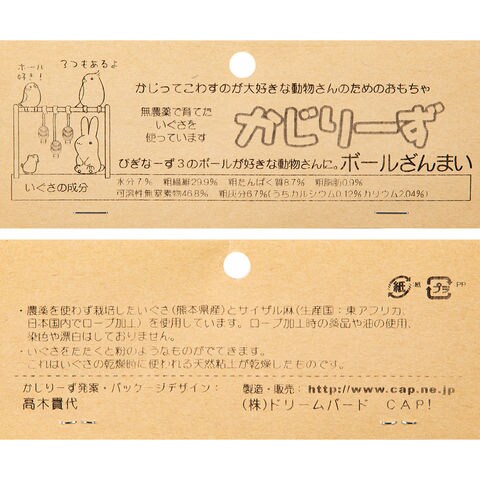 ボール
好き！
3つもあるよ
かじってこわすのが大好きな動物さんのためのおもちゃ
無農薬で育てた
いぐさを
使っています
かじりーず
びぎなーず3のボールが好きな動物さんに。ボールざんまい
いぐさの成分
水分7% 粗繊維29.9% 粗たんぱく質8.7% 粗脂肪0.9%
可溶性無窒素物46.8% 粗灰分6.7%(うちカルシウム0.12%カリウム2.04%)
紙 紙 プラ PP
・農薬を使わず栽培したいぐさ(熊本県産)とサイザル麻(生産国：東アフリカ、
日本国内でロープ加工)を使用しています。ロープ加工時の薬品や油の使用、
染色や漂白はしておりません。
・いぐさをたたくと粉のようなものがでてきます。
これはいぐさの乾燥時に使われる天然粘土が乾燥したものです。
かじりーず発案・パッケージデザイン：
高木貴代
製造・販売：http://www.cap.ne.jp
(株)ドリームバード CAP!